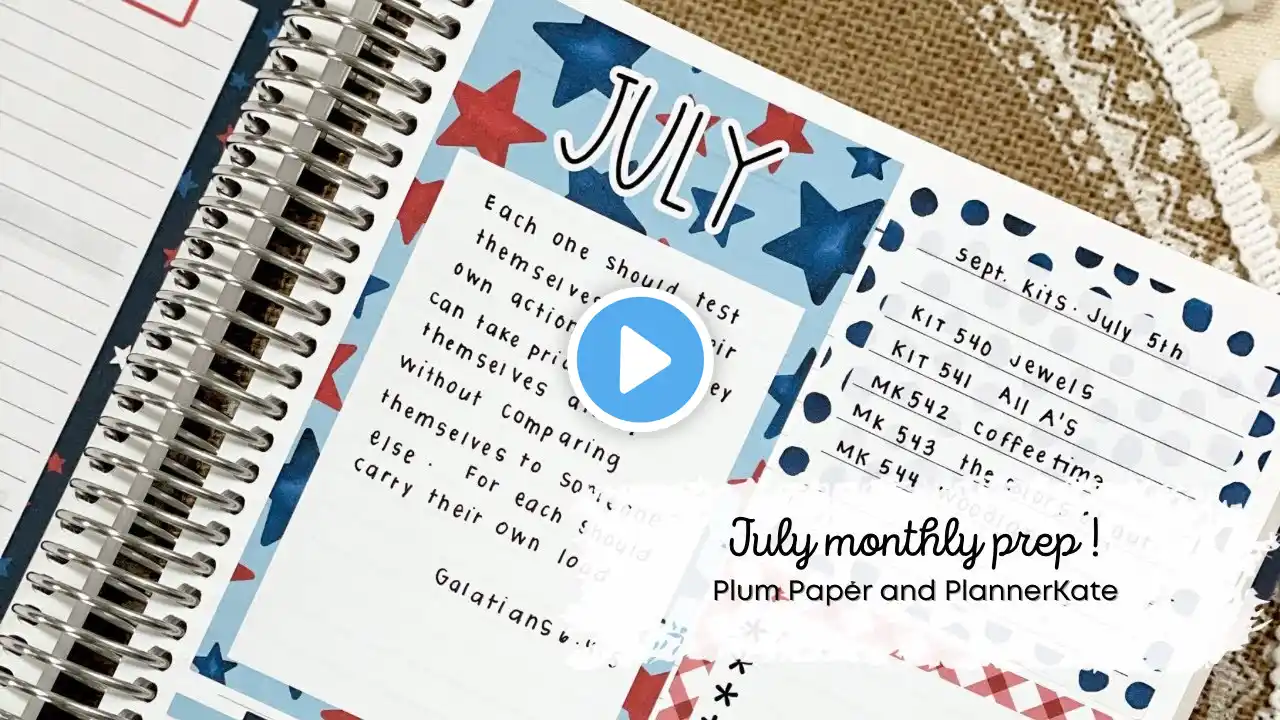 JULY
Each one should test
themselves
own action
can take prid
themselves a
without comparing
themselves to someone
else. For each should
carry their own load
Galatians 6:4,5
Sept. Kits. July 5th
KIT 540 Jewels
KIT 541 All A'S
MK 542 Coffeetime
MK 543 the Colors
MK 544
July monthly prep!
Plum Paper and PlannerKate